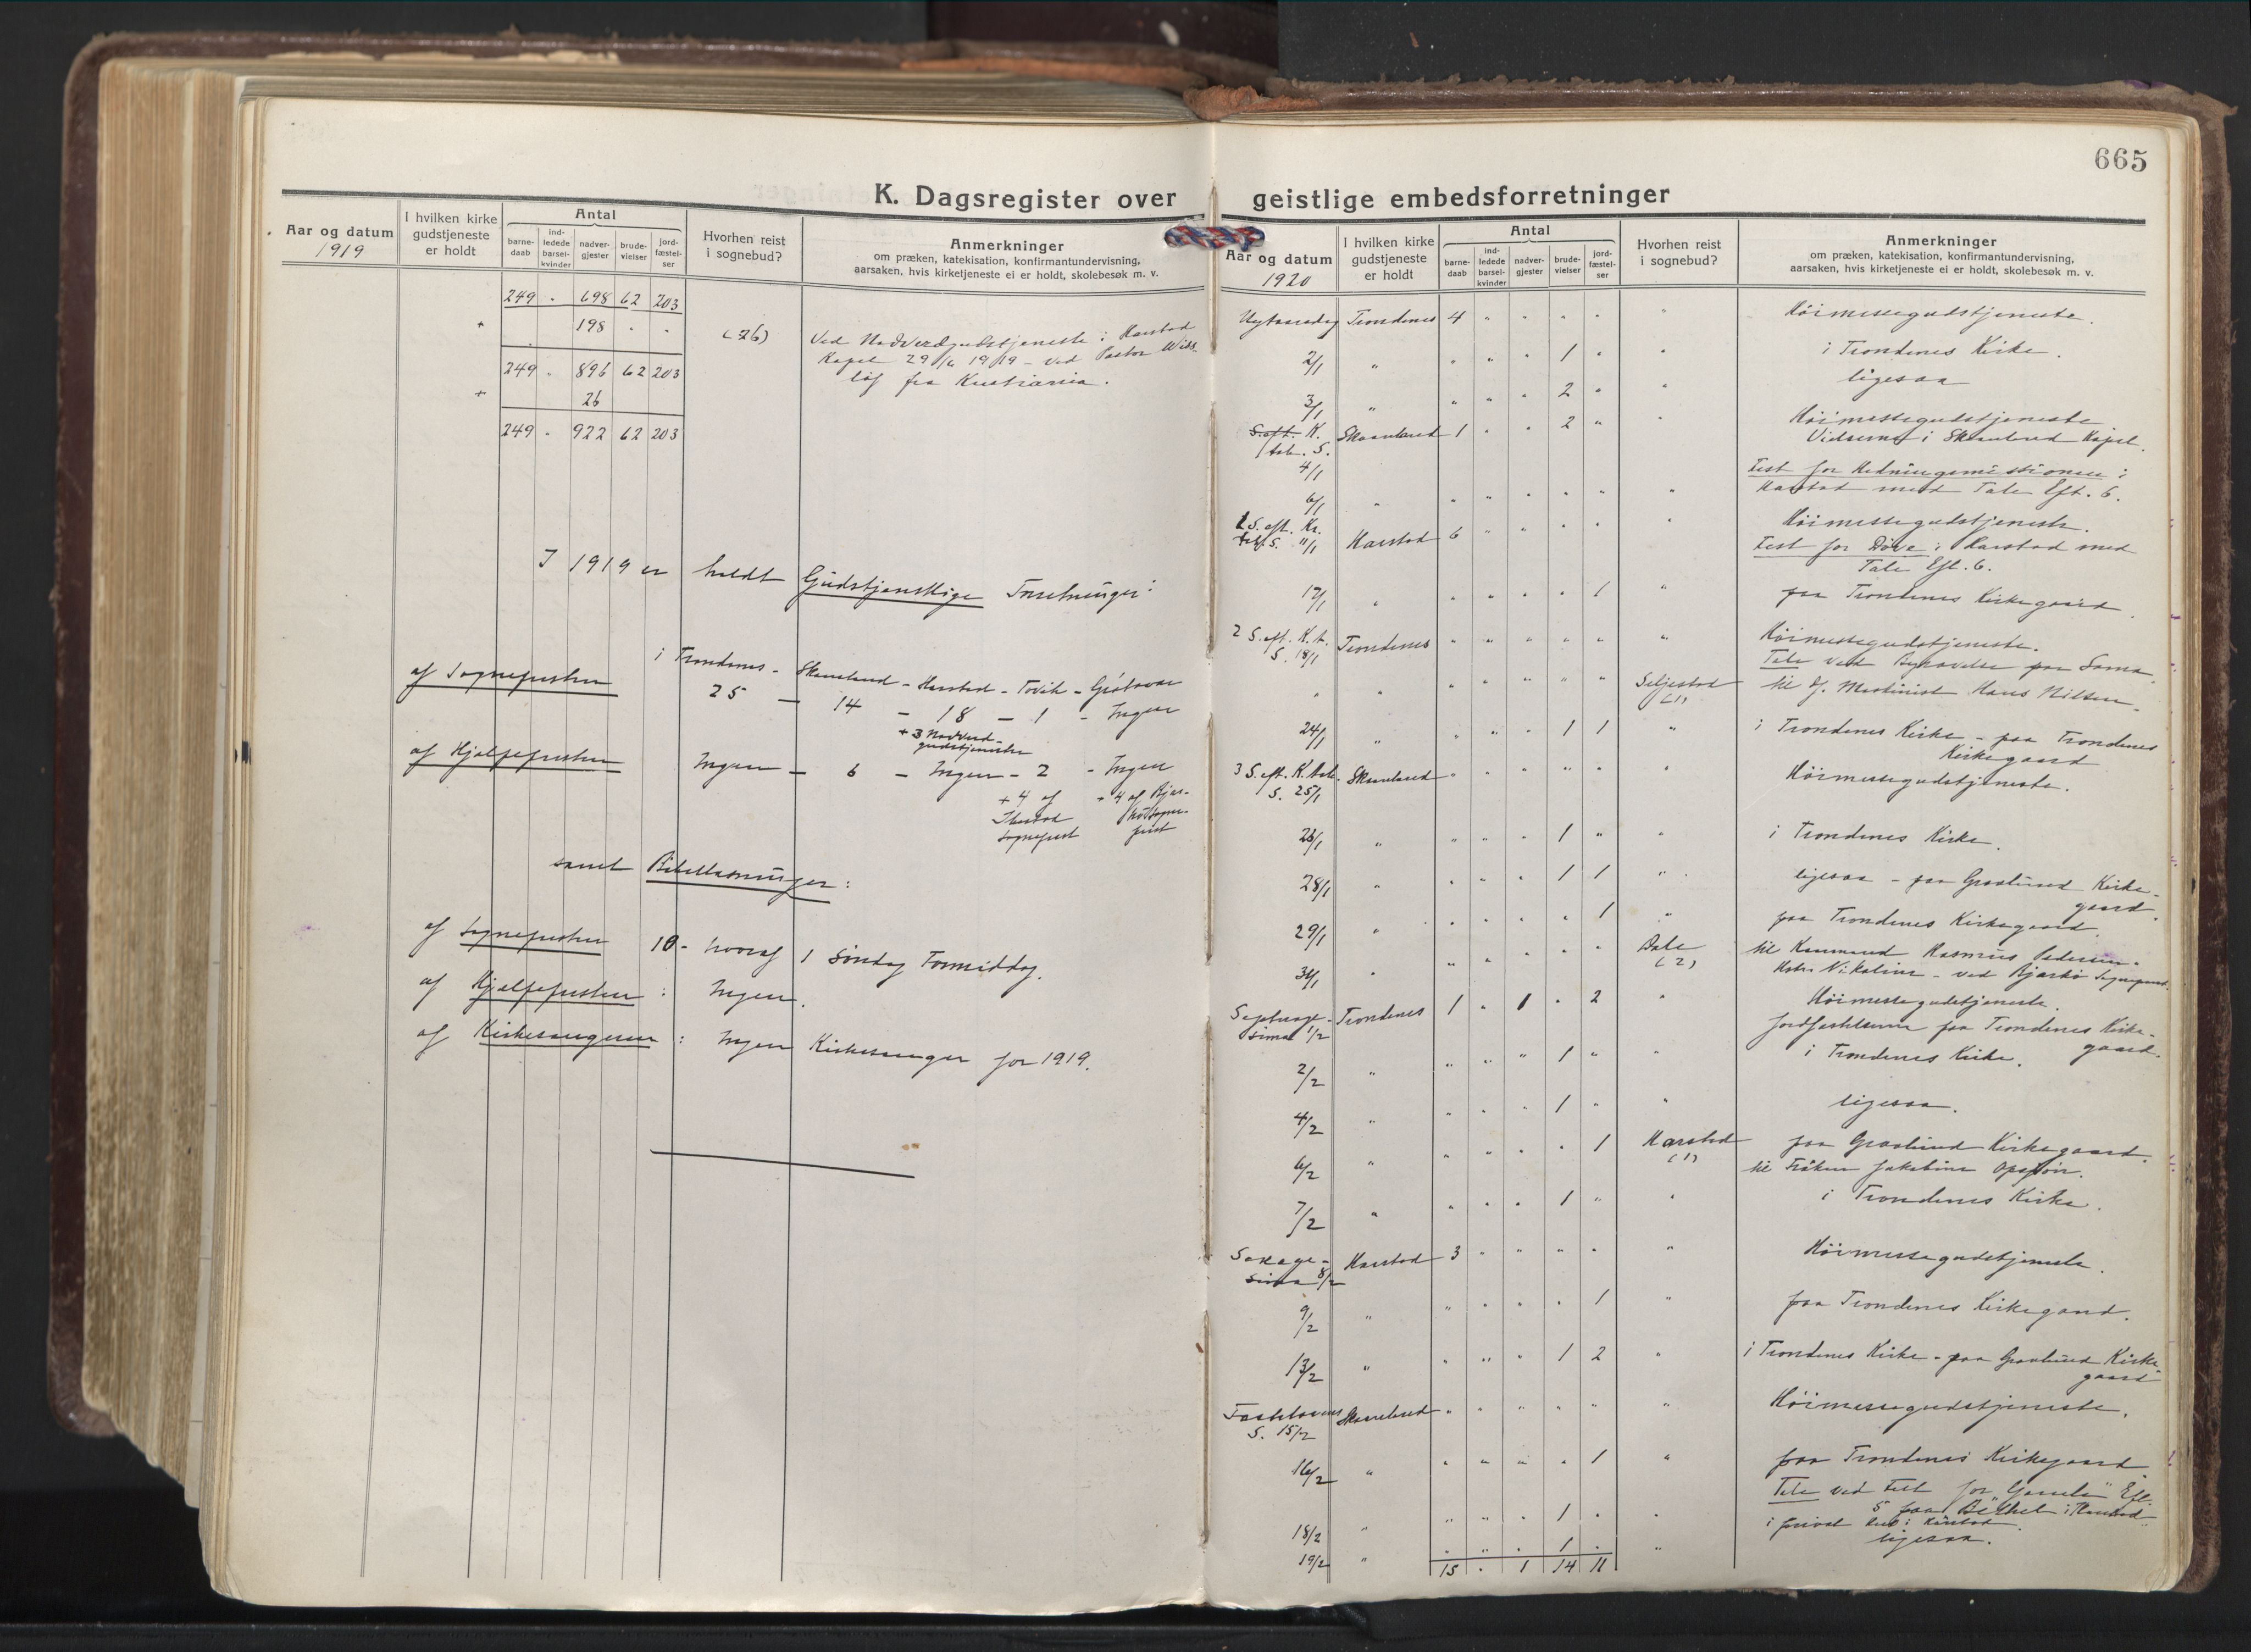 665
K. Dagsregister over geistlige embedsforretninger
Aar og datum
1919
I hvilken kirke
gudstjeneste
er holdt
Antal
barne-
daab
ind-
ledede
barsel-
kvinder
nadver-
gjester
brude-
vielser
jord-
fæstel-
ser
Hvorhen reist
i sognebud?
Anmerkninger
om præken, katekisation, konfirmantundervisning,
aarsaken, hvis kirketjeneste ei er holdt, skolebesøk m. v.
249 . 698 62 203
+ 198 . . (26) Ved Nadverdgudstjeneste i Harstad
Kapel 29/6 1919 - ved Pastor Wids-
løf fra Kristiania.
249 " 896 62 203
+ 26
249 . 922 62 203
I 1919 er holdt Gudstjenstlige Forretninger:
i Trondenes - Skaanland - Harstad - Tovik - Grøtavær
af Sognepresten 25 - 14 - 18 - 1 - Ingen
+ 3 Nadverd-
gudstjenester
af Hjælpepresten Ingen - 6 - Ingen - 2 - Ingen
+ 4 af + 4 af Bjar-
Ibestad kø Sogne-
Sognepræst præst
samt Bibellæsninger:
af Sognepresten 10 - hvoraf 1 Søndag Formiddag.
af Hjælpepresten : Ingen.
af Kirkesangeren : Ingen Kirkesanger for 1919.
Aar og datum
1920
I hvilken kirke
gudstjeneste
er holdt
Antal
barne-
daab
ind-
ledede
barsel-
kvinder
nadver-
gjester
brude-
vielser
jord-
fæstel-
ser
Hvorhen reist
i sognebud?
Anmerkninger
om præken, katekisation, konfirmantundervisning,
aarsaken, hvis kirketjeneste ei er holdt, skolebesøk m. v.
Nytaarsdag Trondenes 4 " " " " " Høimessegudstjeneste.
2/1 " " " " 1 " " i Trondenes Kirke.
3/1 " " " " 2 " " ligesaa
S. eft. K. Skaanland 1 " " 2 " " Høimessegudstjeneste
4/1 Vielserne i Skaanland Kapel.
6/1 " " " " " " " Fest for Hedningemissionen i
Harstad med Tale Eft. 6.
1 S. eft. Kr. Harstad 6 " " " " " Høimessegudstjeneste.
S. 11/1 Fest for Døve i Harstad med
Tale Eft. 6.
17/1 " " " " " 1 " paa Trondenes Kirkegaard.
2 S. eft. K. a. Trondenes " " " " " " Høimessegudstjeneste.
S. 18/1 Tale ved
" " " " " " " Seljestad til Hans Nilsen.
(1)
24/1 " " " " 1 1 " i Trondenes Kirke - paa Trondenes
Kirkegaard
3 S. eft. K. aab. Skaanland " " " " " " Høimessegudstjeneste.
S. 25/1
26/1 " " " " 1 " " i Trondenes Kirke.
28/1 " " " " 1 1 " ligesaa - paa Gravlund Kirke-
gaard.
29/1 " " " " " 1 " paa Trondenes Kirkegaard.
31/1 " " " " " " Dale til Rasmus Pedersen -
(2) Nikoline - ved Bjarkø Sognepræst.
Septuage- Trondenes 1 " 1 " 2 " Høimessegudstjeneste.
sima 1/2 Jordfæstelserne paa Trondenes Kirke-
gaard.
2/2 " " " " 1 " " i Trondenes Kirke.
4/2 " " " " 1 " " ligesaa.
6/2 " " " " " 1 Harstad paa Gravlund Kirkegaard.
(1) til Frøken Jakobine
7/2 " " " " 1 " " i Trondenes Kirke.
Sexage- Harstad 3 " " " " " Høimessegudstjeneste.
sima 8/2
9/2 " " " " " 1 " paa Trondenes Kirkegaard.
13/2 " " " " 1 2 " i Trondenes Kirke - paa Gravlund Kirke-
gaard
Fastelavns Skaanland " " " " " " Høimessegudstjeneste.
S. 15/2
16/2 " " " " " 1 " paa Trondenes Kirkegaard
Tale ved Fest for Gamle Eft.
5 paa Bethel i Harstad
18/2 " " " " 1 " " i privat Hus i Harstad.
19/2 " " " " 1 " " ligesaa.
15 " 1 14 11